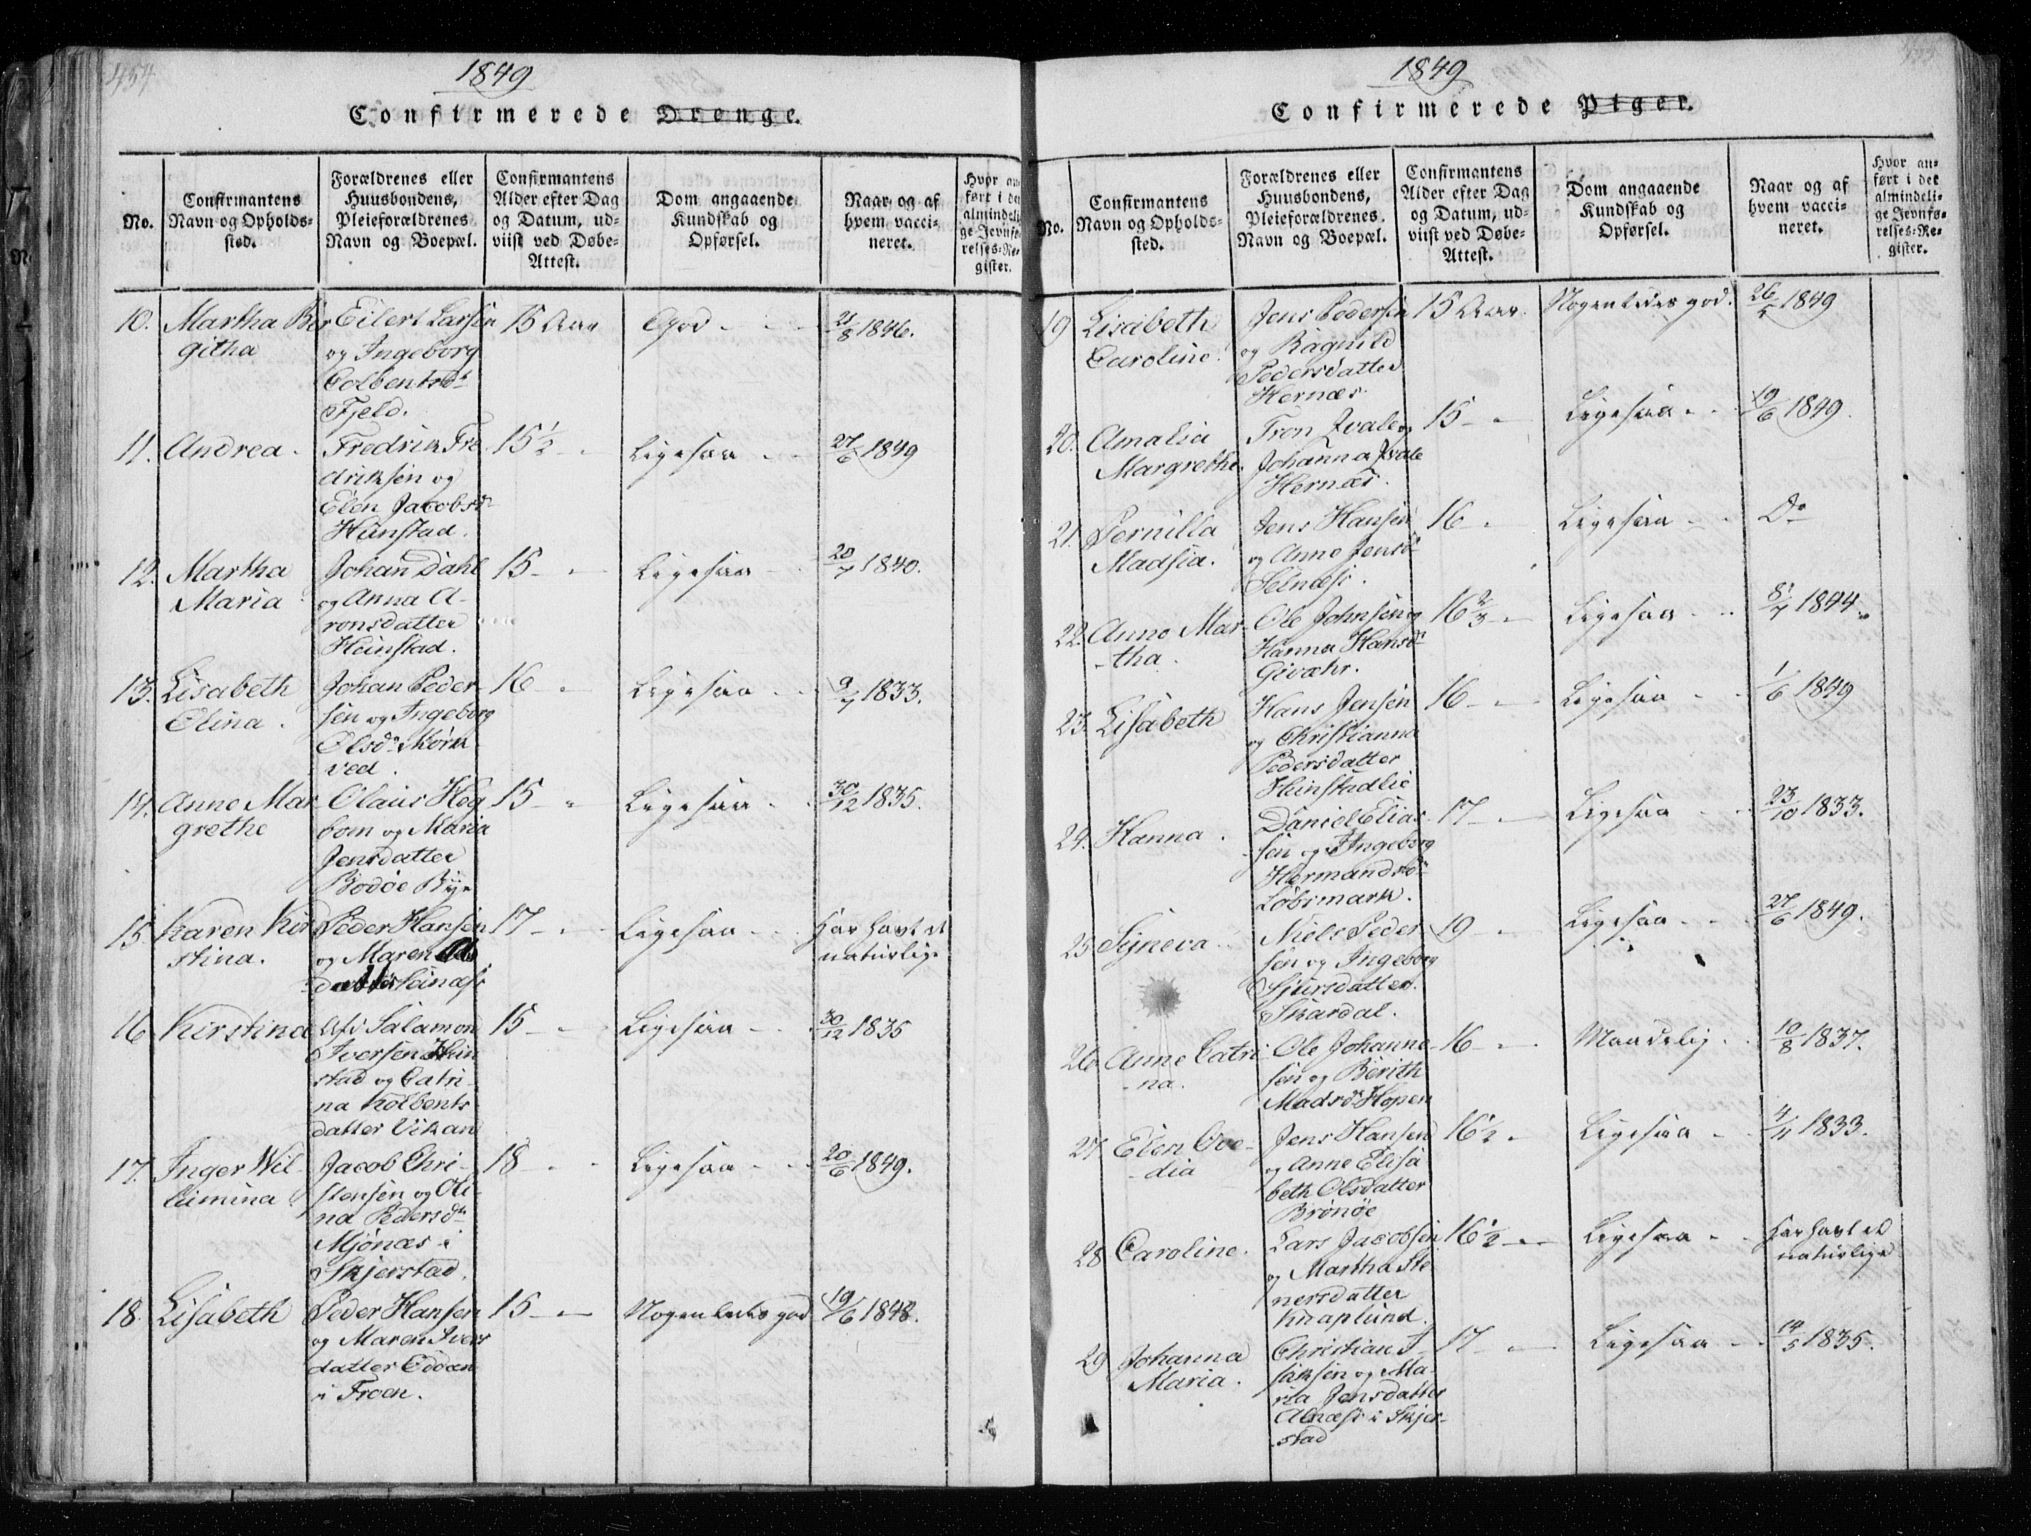 454
1849
Confirmerede Drenge.
No.
Confirmantens
Navn og Opholds-
sted.
Forældrenes eller
Huusbondens,
Pleieforældrenes
Navn og Boepæl.
Confirmantens
Alder efter Dag
og Datum, ud-
viist ved Døbe-
Attest.
Dom angaaende
Kundskab og
Opførsel.
Naar og af
hvem vacci-
neret.
Hvor an-
ført i det
almindeli-
ge Jevnfø-
relses-Re-
gister.
10. Martha Ber
githa
Eilert Larsen
og Ingeborg
Colbentsd.
Fjeld.
15 Aar
God
21/8 1846.
11. Andrea.
Fredrik Fre
driksen og
Elen Jacobsd.
Hunstad.
15½
Ligesaa
27/6 1849
12. Martha
Maria
Johan Dahl
og Anna A-
ronsdatter
Heinstad.
15
Ligesaa
20/7 1840.
13. Lisabeth
Elina.
Johan Peder-
sen og Ingeborg
Olsd. Mørk
ved.
16
Ligesaa
9/7 1833.
14. Anne Mar
grethe
Olaus Hog
bom og Maria
Jensdatter
Bodøe Bye
15
Ligesaa
30/12 1835.
15 Karen Kir
stina.
Peder Hansen
og Maren
datter Seinæs
17
Ligesaa
har havt de
naturlige
16 Kirstina
Afd Salamon
Iversen Hun
stad og Catri-
na Kolbents
datter Vikan
15
Ligesaa
30/12 1835
17. Inger Wil-
limina
Jacob Chri-
stensen og Oli-
na Pedersd.
Mjønæs i
Skjerstad.
18
Ligesaa
20/6 1849.
18. Lisabeth
Peder Hansen
og Maren Ivers
datter Edvan
i Troen.
15
Nogenledes god
19/6 1848.
1849
Confirmerede Piger.
No.
Confirmantens
Navn og Opholds-
sted.
Forældrenes eller
Huusbondens,
Pleieforældrenes
Navn og Boepæl.
Confirmantens
Alder efter Dag
og Datum, ud-
viist ved Døbe-
Attest.
Dom angaaende
Kundskab og
Opførsel.
Naar og af
hvem vacci-
neret.
Hvor an-
ført i det
almindeli-
ge Jevnfø-
relses-Re-
gister.
19 Lisabeth
Caroline.
Jens Pedersen
og Ragnild
Pedersdatter
Hernæs.
15 Aar.
Nogenledes god.
26/5 1849
20. Amalia
Margrethe.
Tron Ivale og
Johanna Ivale
Hernæs.
15
Ligesaa
19/6 1849.
21. Pernilla
Madsia.
Jens Hansen
og Anne Jensd.
Selnæs.
16
Ligesaa
Do
22. Anne Mar-
-tha.
Ole Johnsen og
Hanna Hansd.
Givæhr.
16 2/3
Ligesaa
8/7 1844.
23. Lisabeth
Hans Jensen
og Christianna
Pedersdatter
Hunstadlie
16
Ligesaa
1/6 1849
24. Hanna.
Daniel Elias-
sen og Ingeborg
Hermandsd.
Løbsmark.
17
Ligesaa
23/10 1833.
25 Sýneva.
Niels Peder
sen og Ingeborg
Sjursdatter.
Skardal.
19
Ligesaa
27/6 1849.
26 Anne Catri
-na.
Ole Johanne-
sen og Berith
Madsd. Hopen
16
Maadelig
10/8 1837.
27 Elen Ove-
-dia
Jens Hansen
og Anne Elisa
beth Olsdatter
Brønøe
16½
Ligesaa
4/11 1833.
28 Caroline.
Lars Jacobsen
og Martha Ste
nersdatter
Knaplund.
16½
Ligesaa
har havt de
naturlige
29 Johanna
Maria.
Christian I-
saksen og Ma-
ria Jensdatter
Alnæs i Skjer-
stad
17
Ligesaa
14/5 1835.